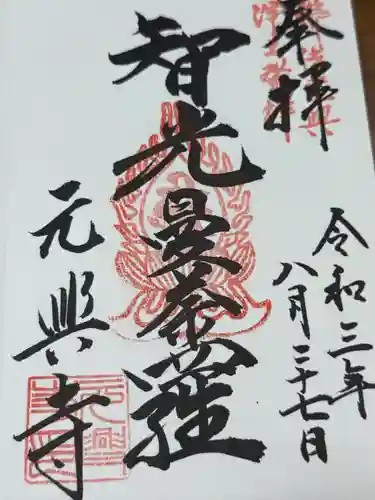 奉拝
令和三年
八月二十七日
智光曼荼羅
元興寺